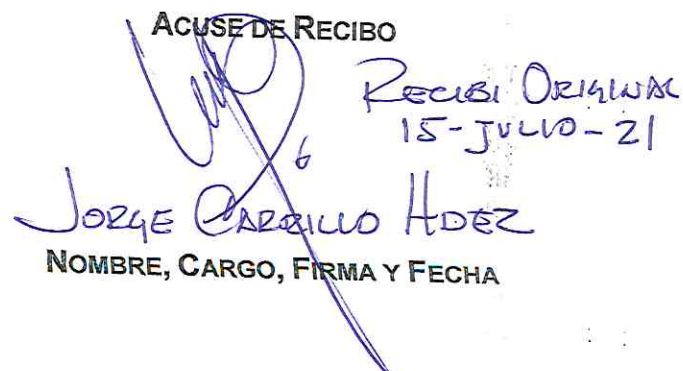 ACUSE DE RECIBO
RECIBI ORIGINAL
15-JULIO-21
JORGE CARRILLO HDEZ
NOMBRE, CARGO, FIRMA Y FECHA